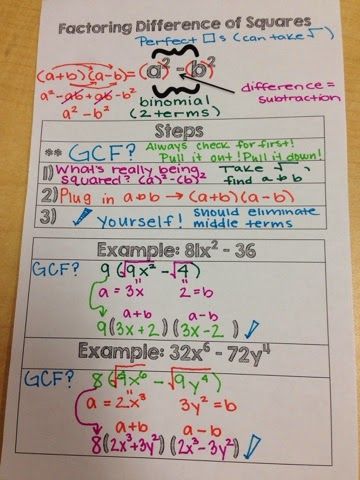 Factoring Difference of Squares
Perfect □s (can take √)
(a+b)(a-b) = (a² - b²)
a² - ab + ab - b²
a² - b²
binomial
(2 terms)
difference =
subtraction
Steps
** GCF? Always check for first!
Pull it out! Pull it down!
1) What's really being squared? (a)² - (b)² Take √, find a + b
2) Plug in a + b → (a+b)(a-b)
3) ✓ Yourself! should eliminate middle terms
Example: 81x² - 36
GCF? 9(√9x² - √4)
a = 3x 2 = b
a+b a-b
9(3x+2)(3x-2) ✓
Example: 32x⁶ - 72y⁴
GCF? 8(√4x⁶ - √9y⁴)
a = 2x³ 3y² = b
a+b a-b
8(2x³+3y²)(2x³-3y²) ✓